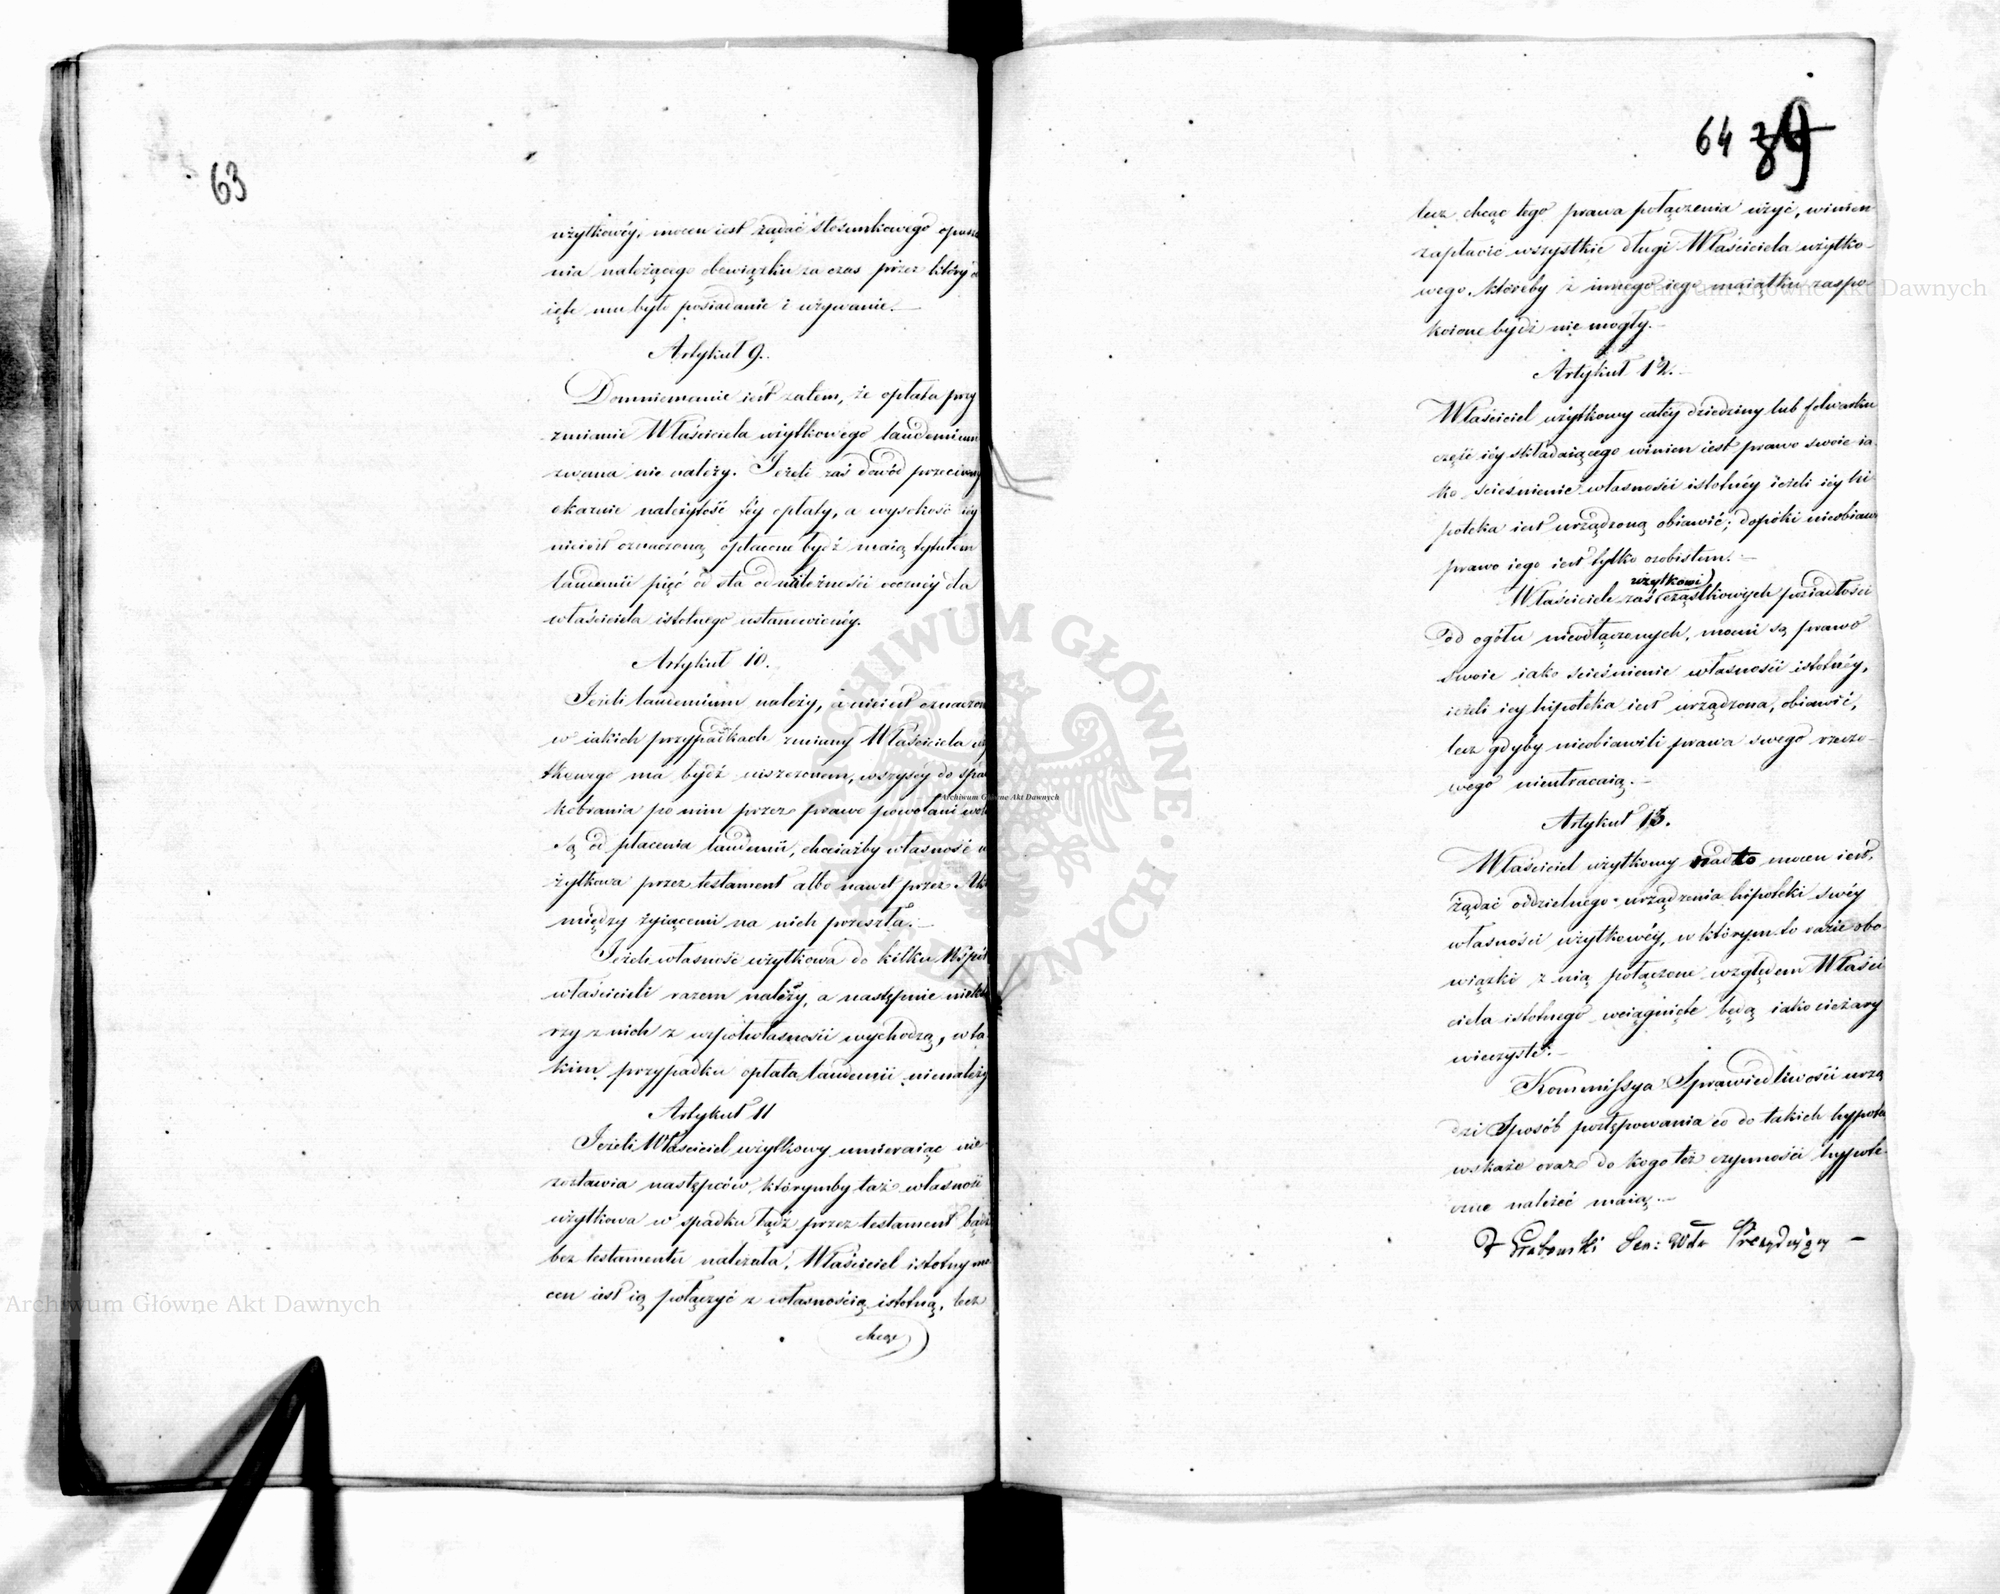 63
użytkowéy, mocen iest żądać stosunkowego opuszcze
nia należącego obowiązku za czas przez który od
ięte mu było posiadanie i używanie.—
Artykuł 9.
Domniemanie iest zatem, że opłata przy
zmianie Właściciela użytkowego laudemium
zwana nie należy. Jeżeli zaś dowód przeciwny
okazuie należytość téy opłaty, a wysokość iéy
nieiest oznaczoną opłacone bydź maią tytułem
laudemii pięć od sta od należności rocznéy dla
właściciela istotnego ustanowionéy.
Artykuł 10.
Jeżeli laudemium należy, a nieiest oznaczone
w iakich przypadkach zmiany Właściciela uży
tkowego ma bydź uiszczonem, wszyscy do spad
kobrania po nim przez prawo powołani wolni
są od płacenia laudemii, chociażby własność u
żytkowa przez testament albo nawet przez Akt
między żyiącemi na nich przeszła.—
Jeżeli własność użytkowa do kilku Współ
właścicieli razem należy, a następnie niektó
rzy z nich z wspołwłasności wychodzą, w ta
kim przypadku opłata laudemii nienależy
Artykuł 11
Jeżeli Właściciel użytkowy umieraiąc nie
zostawia następców, którymby taż własność
użytkowa w spadku bądź przez testament bądź
bez testamentu należała, Właściciel istotny mo
cen iest ią połączyć z własnością istotną, lecz
chcąc
64 39
lecz chcąc tego prawa połączenia użyć, winien
zapłacić wszystkie długi Właściciela użytko-
wego, któreby z innego iego maiątku zaspo-
koione bydź nie mogły.—
Artykuł 12.
Właściciel użytkowy całéy dziedziny lub folwarku
część iéy składaiącego winien iest prawo swoie ia-
ko ścieśnienie własności istotnéy ieżeli iéy hi
poteka iest urządzoną obiawić; dopóki nieobiawi
prawo iego iest tylko osobistem.—
użytkowi
Właściciele zaś cząstkowych posiadłości
od ogółu nieodłączonych, mocni są prawo
swoie iako ścieśnienie własności istotnéy,
ieżeli iey hipoteka iest urządzona, obiawić,
lecz gdyby nieobiawili prawa swego rzeczo-
wego nieutracaią.—
Artykuł 13.
Właściciel użytkowy nadto mocen iest,
żądać oddzielnego urządzenia hipoteki swéy
własności użytkowéy, w którym to razie obo-
wiązki z nią połączone względem Właści
ciela istotnego wciągnięte będą iako ciężary
wieczyste.—
Kommissya Sprawiedliwości urzą
dzi sposób postępowania co do takich hypotek
wskaże oraz do kogo też czynności hypote-
czne należeć maią.—
Grabowski Sen: Wda Prezyduiący —
Archiwum Główne Akt Dawnych
Archiwum Główne Akt Dawnych
Archiwum Główne Akt Dawnych